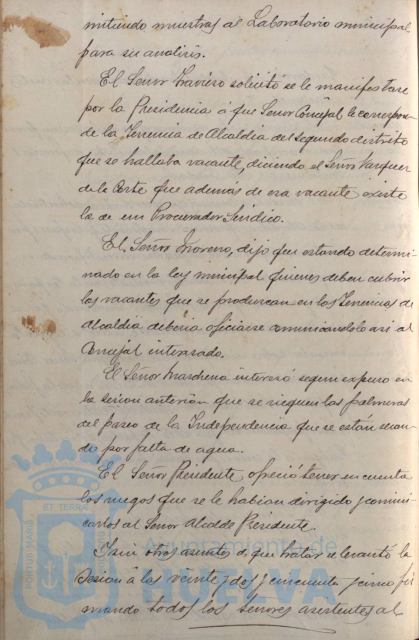 mitiendo muestras al Laboratorio municipal
para su analisis.
El Señor Traviero solicitó se le manifestare
por la Presidencia á que Señor Concejal le correspon-
de la Tenencia de Alcaldia del segundo distrito
que se hallaba vacante, diciendo el Señor Vazquez
de la Corte que ademas de esa vacante existe
la de un Procurador Sindico.
El Señor Moreno, dijo que estando determi-
nado en la ley municipal quienes deben cubrir
las vacantes que se produzcan en las Tenencias de
Alcaldia deberia oficiarse comunicandolo asi al
Concejal interesado.
El Señor Marchena interesó segun expuso en
la sesion anterior que se rieguen las palmeras
del paseo de la Independencia que se están secan-
do por falta de agua.
El Señor Presidente ofreció tener en cuenta
los ruegos que se le habian dirigido y comuni-
carlos al Señor Alcalde Presidente.
Y sin otros asuntos de que tratar se levantó la
sesion á las veinte y dos y cincuenta y cinco fir-
mando todos los señores asistentes al
PORTUS MARIS
ET TERRAE
Ayuntamiento de
HUELVA